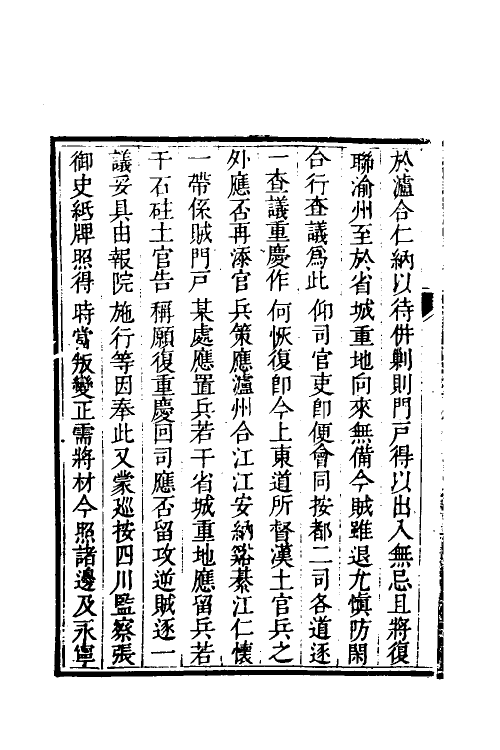 於瀘合仁納以待併剿則門戸得以出入無忌且將復
聯渝州至於省城重地向來無備今賊雖退尤慎防閑
合行查議爲此仰司官吏即便會同按都二司各道逐
一查議重慶作何恢復即今上東道所督漢土官兵之
外應否再添官兵策應瀘州合江江安納谿綦江仁懷
一帶係賊門戸某處應置兵若干省城重地應留兵若
干石砫土官告稱願復重慶回司應否留攻逆賊逐一
議妥具由報院施行等因奉此又蒙巡按四川監察張
御史紙牌照得時當叛變正需將材今照諸邊及永寧